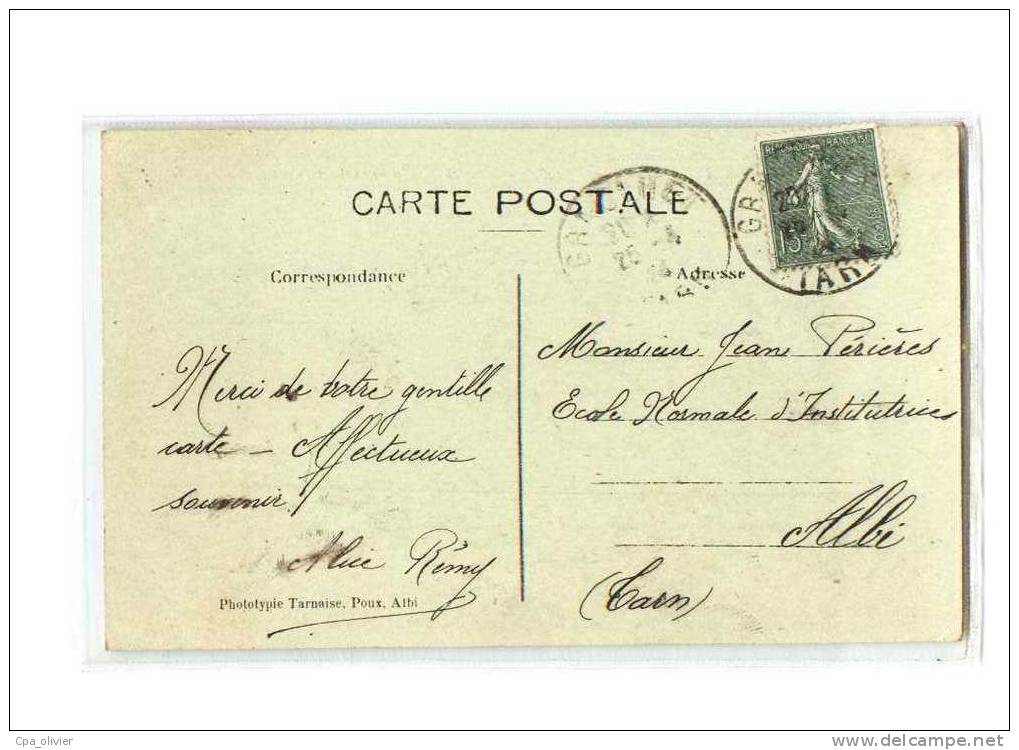 CARTE POSTALE
Correspondance
Merci de votre gentille
carte - Affectueux
souvenir.
Alice Rémy
Phototypie Tarnaise, Poux, Albi
RÉPUBLIQUE FRANÇAISE
15
GRAULHET
TARN
Adresse
Monsieur Jean Périères
Ecole Normale d'Institutrices
Albi
(Tarn)
Cpa_olivier
www.delcampe.net